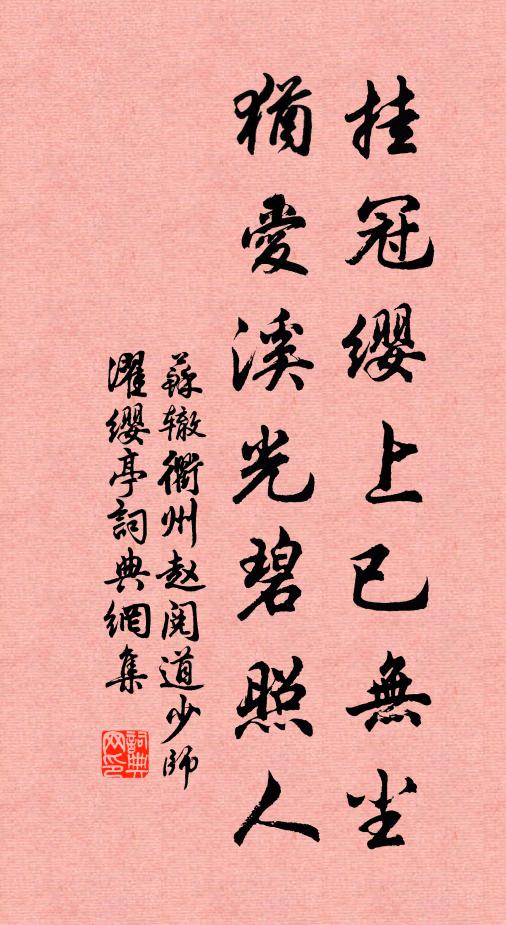 挂冠缨上已無尘
猶愛溪光碧照人
蘇辙衢州赵阅道少師
濯缨亭詞典網集
詞典网印